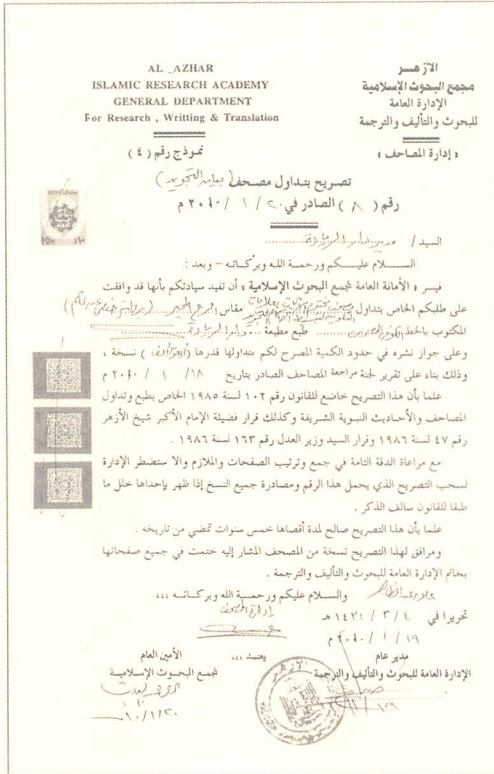 AL AZHAR
ISLAMIC RESEARCH ACADEMY
GENERAL DEPARTMENT
For Research , Writting & Translation
الأزهـــر
مجمع البحوث الإسلامية
الإدارة العامة
للبحوث والتأليف والترجمة
« إدارة المصاحف »
نموذج رقم ( ٤ )
تصريح بتداول مصحف
رقم ( ٨ ) الصادر في ٢٠ / ١ / ٢٠١٠ م
السيد /
السلام عليكم ورحمة الله وبركاته – وبعد :
فيسر « الأمانة العامة لمجمع البحوث الإسلامية » أن تفيد سيادتكم بأنها قد وافقت
على طلبكم الخاص بتداول مقاس
المكتوب بالخط طبع مطبعة
وعلى جواز نشره في حدود الكمية المصرح لكم بتداولها قدرها ( ) نسخة ،
وذلك بناء على تقرير لجنة مراجعة المصاحف الصادر بتاريخ ١٨ / ١ / ٢٠١٠ م
علما بأن هذا التصريح خاضع للقانون رقم ١٠٢ لسنة ١٩٨٥ الخاص بطبع وتداول
المصاحف والأحاديث النبوية الشريفة وكذلك قرار فضيلة الإمام الأكبر شيخ الأزهر
رقم ٤٧ لسنة ١٩٨٦ وقرار السيد وزير العدل رقم ١٦٣ لسنة ١٩٨٦ .
مع مراعاة الدقة التامة في جمع وترتيب الصفحات والملازم والا ستضطر الإدارة
لسحب التصريح الذي يحمل هذا الرقم ومصادرة جميع النسخ إذا ظهر بإحداها خلل ما
طبقا للقانون سالف الذكر .
علما بأن هذا التصريح صالح لمدة أقصاها خمس سنوات تمضي من تاريخه .
ومرافق لهذا التصريح نسخة من المصحف المشار إليه ختمت في جميع صفحاتها
بخاتم الإدارة العامة للبحوث والتأليف والترجمة .
والسلام عليكم ورحمة الله وبركاته ،،،
تحريرا في ٤ / ٢ / ١٤٣١ هـ
١٩ / ١ / ٢٠١٠ م
إدارة المصاحف
يعتمد ،،،
مدير عام
الإدارة العامة للبحوث والتأليف والترجمة
الأمين العام
لمجمع البحوث الإسلامية